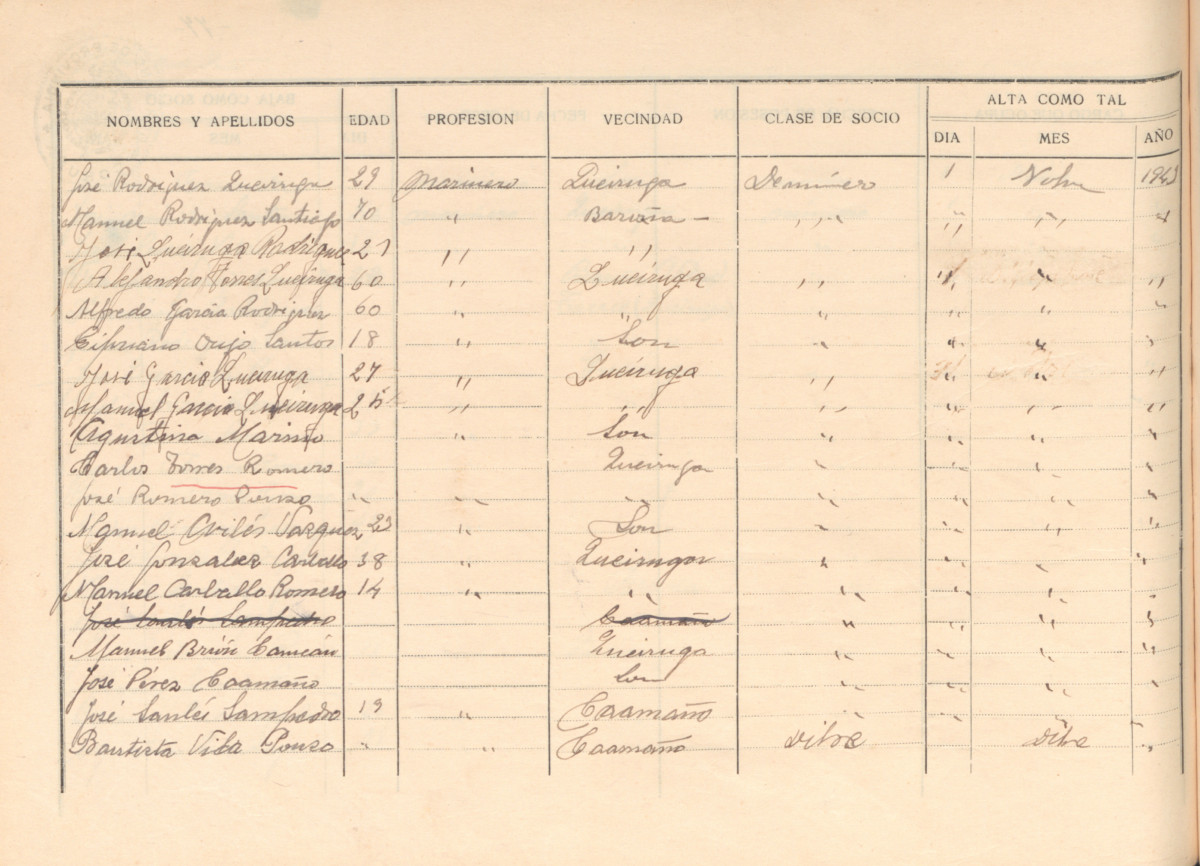 NOMBRES Y APELLIDOS EDAD PROFESION VECINDAD CLASE DE SOCIO ALTA COMO TAL
DIA MES AÑO
José Rodriguez Queiruga 29 Marinero Queiruga 1 Nobre 1943
Manuel Rodriguez Santiago 70 " Baroña - " " " "
José Queiruga Rodriguez 27 " "
Alejandro Torres Queiruga 60 " Queiruga " " " "
Alfredo Garcia Rodriguez 60 " " " " "
Cipriano Orijo Santos 18 " Son " " " "
José Garcia Queiruga 27 " Queiruga " " " "
Manuel Garcia Queiruga 25 " " " " " "
Agustina Mariño " Son " " " "
Carlos Torres Romero Queiruga " " " "
José Romero Pouso " " " " " " "
Manuel Avilés Vazquez 23 " Son " " " "
José Gonzalez Carballo 38 " Queiruga " " " "
Manuel Carballo Romero 14 " " " " " "
José Sampedro Caamaño " " " "
Manuel Brión Cameán Queiruga " " " "
José Pérez Caamaño Son " " " "
José Santés Sampedro 19 " Caamaño " " " "
Bautista Vila Pouso " " Caamaño Ditre Ditre "